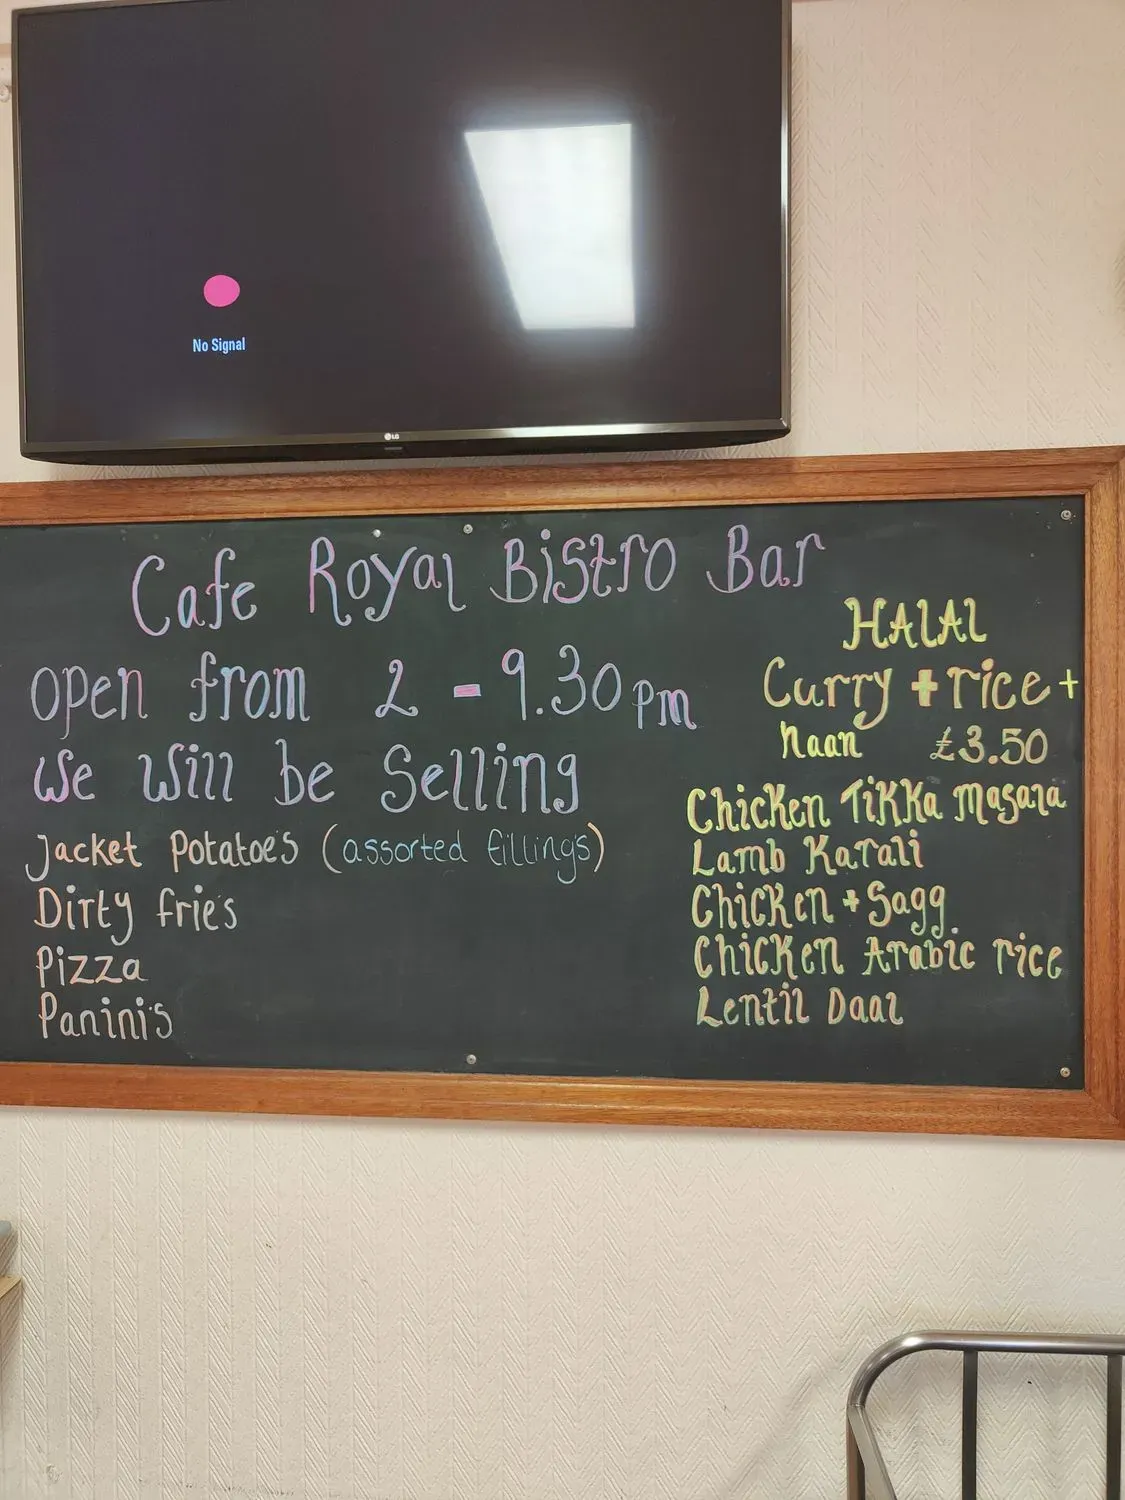 No Signal
LG
Cafe Royal Bistro Bar
open from 2 - 9.30pm
we will be selling
Jacket Potatoe's (assorted filling's)
Dirty frie's
Pizza
Panini's
HALAL
Curry + rice +
Naan £3.50
Chicken Tikka Masala
Lamb Karali
Chicken + Sagg.
Chicken Arabic rice
Lentil Daal